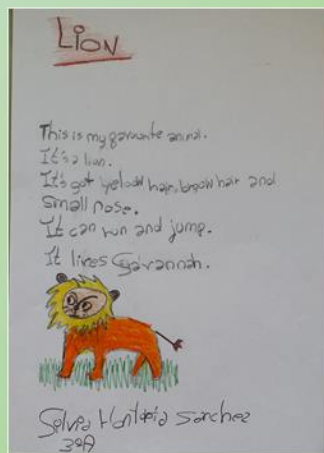 LION
This is my favourite animal.
It's a lion.
It's got yelow hair, brown hair and
small nose.
It can run and jump.
It lives Savannah.
Silvia Hontoria Sanchez
3ºA